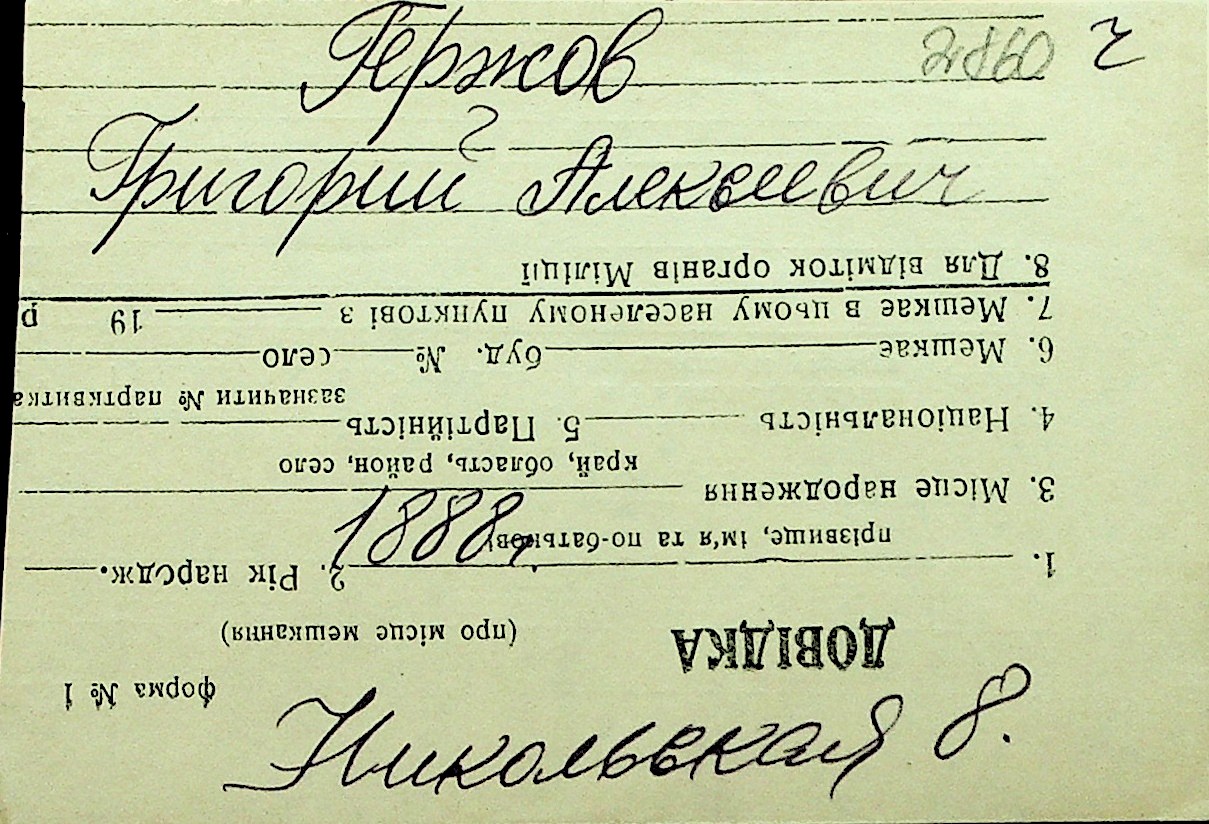 Гержов
Григорий Алексеевич
1888.
Никольская 8.
форма № 1
ДОВІДКА
(про місце мешкання)
1.
2. Рік народж.
прізвище, ім'я та по-батькові
3. Місце народження
край, область, район, село
4. Національність 5. Партійність
зазначити № партквитка
6. Мешкає буд. № село
7. Мешкає в цьому населеному пунктові з 19 р
8. Для відміток органів Міліції